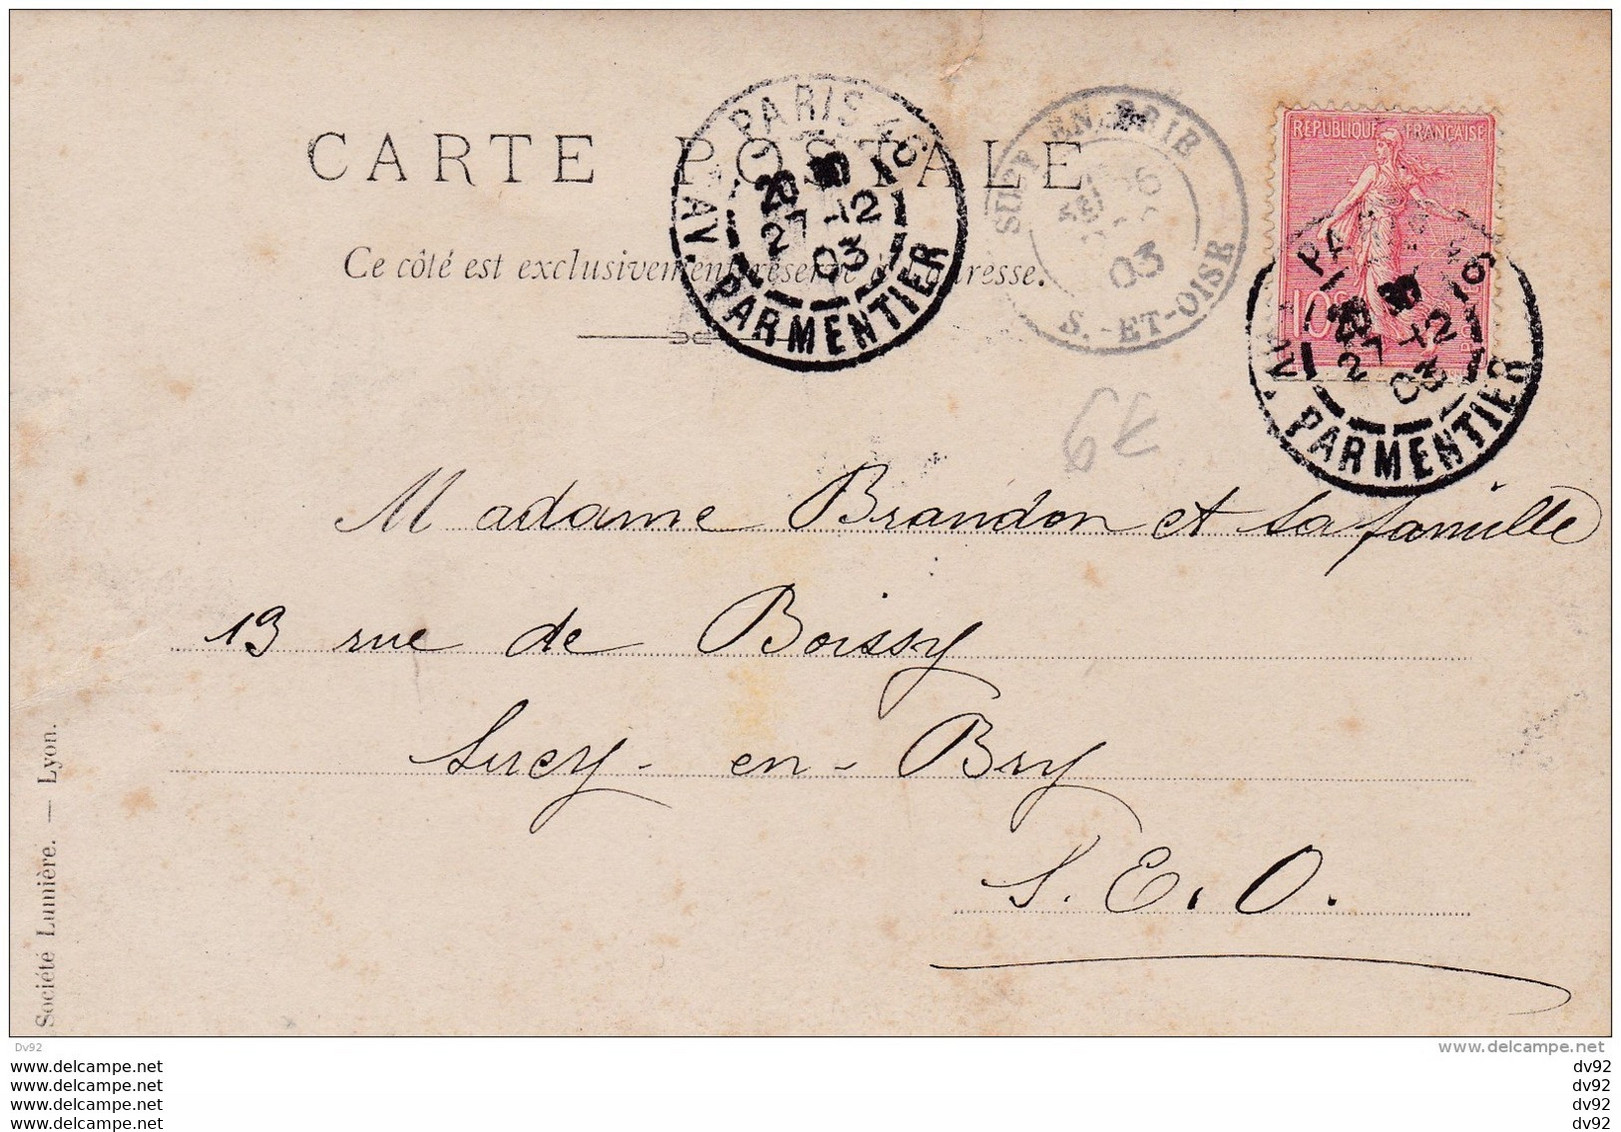 CARTE POSTALE
Ce côté est exclusivement réservé à l'adresse.
PARIS 46
20 30
27 -12
03
AV. PARMENTIER
SUCY EN BRIE
03
S.-ET-OISE
REPUBLIQUE FRANÇAISE
10
PA 46
27 -12
03
AV. PARMENTIER
6€
Madame Brandon et sa famille
13 rue de Boissy
Sucy-en-Bry
S. E. O.
Société Lumière. — Lyon.
Dv92
www.delcampe.net
www.delcampe.net
www.delcampe.net
www.delcampe.net
www.delcampe.net
dv92
dv92
dv92
dv92